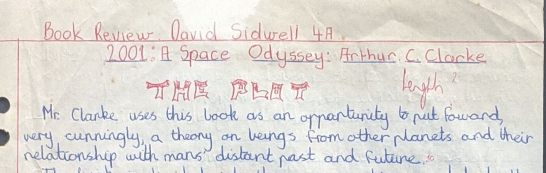 Book Review. David Sidwell 4A
2001: A Space Odyssey: Arthur. C. Clarke
THE PLOT
Length ?
Mr. Clarke uses this book as an opportunity to put foward,
very cunningly, a theory on beings from other planets and their
relationship with mans' distant past and future.